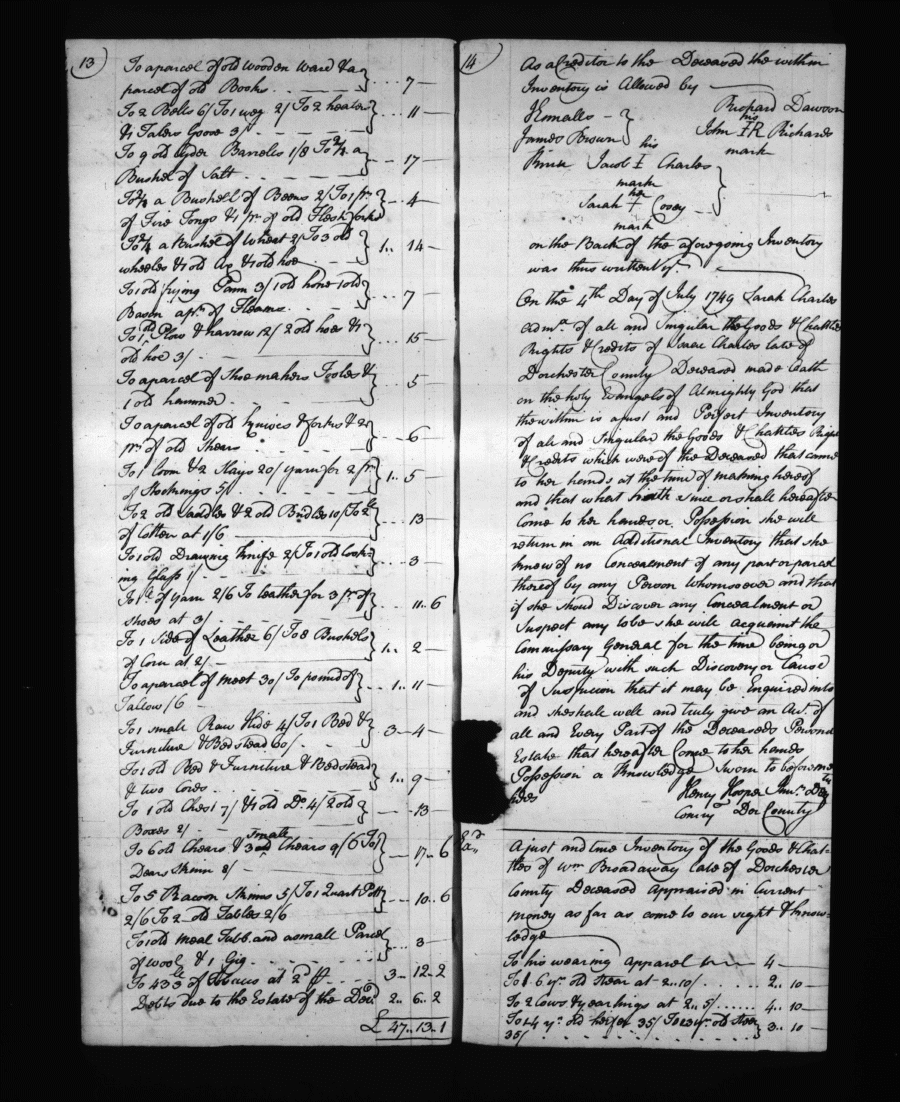 13
To a parcel of old wooden ward & a
parcel of old Books - - - } ... 7 —
To 2 Bells 6/ To 1 weg 2/ To 2 heater
& 1 Talers Goose 3/ - - - } .... 11 —
To 9 old Syder Barreles 1/8 To 2/4 a
Bushel of Salt - - - } ... 17 —
To 2/4 a Bushell of Beens 2/ To 1 pr.
of Fire Tongs & 1 pr. of old Flesh forks } - - 4 —
To 2/4 a Bushel of Wheat 2/ To 3 old
wheeles & 1 old Ax & 1 old hoe } 1 .. 14 —
To 1 old frying Pann 3/ 1 old hone 1 old
Bason a pr. of Fleams - } ... 7 —
To 1 old Plow & harrow 12/ 2 old hoes & 1
old hoe 3/ - - - } ... 15 —
To a parcel of Shoe makers Tooles &
1 old hammer - - - } ... 5 —
To a parcel of old kynives & forkes & 2
pr. of old Shears - - } ... 6 —
To 1 loom & 2 Slays 20/ yarn for 2 pr.
of Stockings 5/ - - - } 1 .. 5 —
To 2 old Saddles & 2 old Bridles 10/ To 2 lb
of Cotten at 1/6 — } ... 13 —
To 1 old Drawing knife 2/ To 1 old look=
ing Glass 1/ - } ... 3 —
To 1 lb of yarn 2/6 To leather for 3 pr. of
shoes at 3/ — } ... 11 .. 6
To 1 Side of Leather 6/ To 8 Bushels
of Corn at 2/ — } 1 .. 2 —
To a parcel of meet 30/ To pound of
Tallow /6 - } ... 1 .. 11 —
To 1 small Raw Hide 4/ To 1 Bed &
Furniture & Bedstead 60/ - } 3 — 4 —
To 1 old Bed & Furniture & Bedstead
& two Cords - } 1 .. 9 —
To 1 old Chest 7/ & 1 old Do 4/ 2 old
Boxes 2/ — } — 13 —
To 6 old Chears & 3 old small Chears 9/6 To
Dears Skinn 8/ } — 17 .. 6
To 5 Racoon Skinns 5/ To 1 Quart Pott
2/6 To 2 old Tables 2/6 } — 10 .. 6
To 1 old Meal Tubb and a small Parcel
of wool & 1 Gig - - - } ... 3 —
To 433 lb of Tobacco at 2d - - 3 — 12 .. 2
Debts due to the Estate of the Decd 2 .. 6 .. 2
£ 47 .. 13 .. 1
14
As a Creditor to the Deceased the within
Inventory is Allowed by —
H Smalls - } Richard Dawson
James Brown } his
John I R Richards
mark
his
Jacob I Charles
mark
her
Sarah I Cosey
mark
on the Back of the aforegoing Inventory
was thus written Vizt. —
On the 4th Day of July 1749 Sarah Charles
admx. of all and Singular the Goods & Chattles
Rights & Credits of Isaac Charles late of
Dorchester County Deceased made Oath
on the holy Evangels of Almighty God that
the within is a just and Perfect Inventory
of all and Singular the Goods & Chattles Rights
& Credits which were of the Deceased that came
to her hands at the time of making hereof
and that what hath since or shall hereafter
Come to her hands or Possession she will
return in an Additional Inventory that she
knew of no Concealment of any part or parcel
thereof by any Person Whomsoever and that
if she shoud Discover any Concealment or
Suspect any to be she will acquaint the
Commissary General for the time being or
his Deputy with such Discovery or Cause
of Suspicion that it may be Enquired into
and she shall well and truly give an Act. of
all and Every Part of the Deceaseds Personal
Estate that hereafter Come to her hands
Possession or Knowledge Sworn to before me
Henry Hooper Junr. Depty
Comry Dor County
A just and true Inventory of the Goods & Chat=
tles of Wm Broadaway late of Dorchester
County Deceased Appraised in Current
money as far as come to our sight & know=
ledge —
To his wearing apparel — 4 —
To 1 6 yr. old Stear at 2 .. 10/ ..... 2 .. 10
To 2 Cows & yearlings at 2 .. 5/ ...... 4 .. 10
To 1 4 yr. old heifer 35/ To 1 3 yr. old Steer
35/ } 3 .. 10